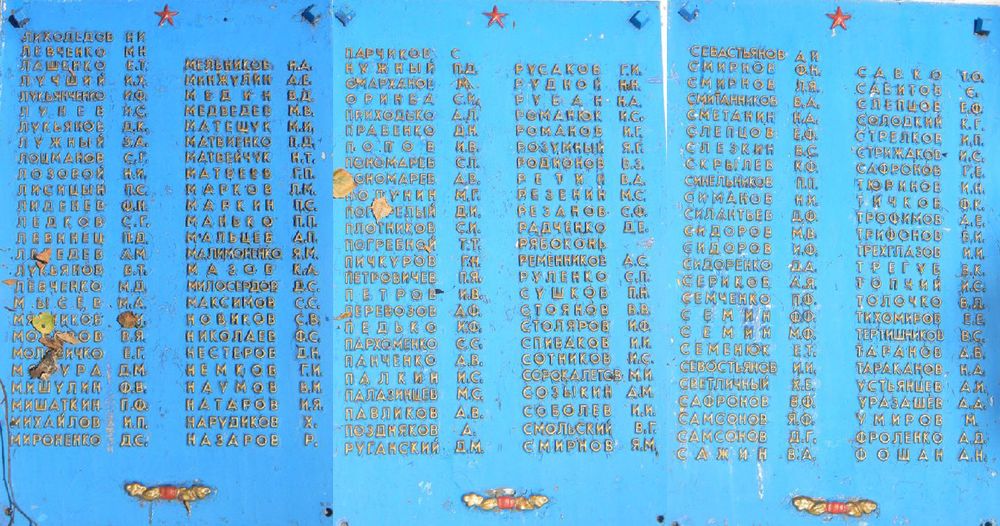 ЛИХОДЕДОВ Н.И.
ЛЕВЧЕНКО М.Н.
ЛАЩЕНКО Е.Т.
ЛУЧШИЙ И.Х.
ЛУКЬЯНЧЕНКО И.Ф.
ЛУНЕВ И.С.
ЛУКЬЯНОВ Д.К.
ЛУЖНЫЙ З.А.
ЛОЦМАНОВ С.Г.
ЛОЗОВОЙ Н.И.
ЛИСИЦЫН П.С.
ЛИДЕНЕВ Ф.Н.
ЛЕДКОВ С.Г.
ЛЕВИНЕЦ П.Д.
А.М.
ЛУКЬЯНОВ В.Т.
ЛЕВЧЕНКО М.Д.
МЫСЕВ М.А.
В.Я.
Е.Г.
Д.М.
МИШУЛИН Ф.В.
МИШАТКИН Г.Ф.
МИХАЙЛОВ И.П.
МИРОНЕНКО Д.С.
МЕЛЬНИКОВ Н.А.
МИНЖУЛИН А.Е.
МЕДИН В.Д.
МЕДВЕДЕВ М.В.
МАТЕЩУК М.И.
МАТВИЕНКО П.Д.
МАТВЕЙЧУК Н.Т.
МАТВЕЕВ Г.П.
МАРКОВ Л.М.
МАРКИН П.С.
МАНЬКО Г.П.
МАЛЬЦЕВ А.П.
МАЛИМОНЕНКО Я.М.
МАЗОВ К.А.
МИЛОСЕРДОВ Д.С.
МАКСИМОВ С.С.
НОВИКОВ С.В.
НИКОЛАЕВ Ф.С.
НЕСТЕРОВ Д.Н.
НЕМКОВ Г.И.
НАУМОВ В.И.
НАТАРОВ И.Я.
НАРУДИКОВ Х.
НАЗАРОВ Р.
ПАРЧИКОВ С.
НУЖНЫЙ П.Д.
ОМАРХАНОВ М.
ОРИНБА С.И.
ПРИХОДЬКО А.Г.
ПРАВЕНКО Д.Н.
ПОПОВ И.В.
ПОНОМАРЕВ С.П.
ПОНОМАРЕВ А.В.
М.Г.
Д.И.
ПЛОТНИКОВ С.И.
ПОГРЕБНОЙ Т.Т.
ПИЧКУРОВ Г.Н.
ПЕТРОВИЧЕВ П.Я.
ПЕТРОВ И.В.
ПЕРЕВОЗОВ А.Ф.
ПЕДЬКО И.Ф.
ПАРХОМЕНКО С.С.
ПАНЧЕНКО А.В.
ПАЛКИН И.С.
ПАЛАЗИНЦЕВ М.С.
ПАВЛИКОВ А.В.
ПОЗДНЯКОВ А.
РУГАНСКИЙ Д.М.
РУСАКОВ Г.И.
РУДНОЙ Н.Н.
РУБАН Н.А.
РОМАНЮК И.С.
РОМАНОВ И.Г.
РОЗУМНЫЙ Я.Г.
РОДИОНОВ В.З.
РЕТИЕ В.А.
РЕЗЕНИН М.С.
РЕЗАНОВ С.Ф.
РАДЧЕНКО Д.Е.
РЯБОКОНЬ
РЕМЕННИКОВ А.С.
РУЛЕНКО С.П.
СУШКОВ П.Н.
СТОЯНОВ В.В.
СТОЛЯРОВ И.Ф.
СПИВАКОВ И.И.
СОТНИКОВ И.С.
СОРОКАЛЕТОВ М.И.
СОЗЫКИН А.М.
СОБОЛЕВ И.И.
СМОЛЬСКИЙ В.Г.
СМИРНОВ Я.М.
СЕВАСТЬЯНОВ А.И.
СМИРНОВ Ф.Н.
СМИРНОВ Л.Я.
СМИТАННИКОВ В.А.
СМЕТАНИН Н.А.
СЛЕПЦОВ Е.Ф.
СЛЕЗКИН В.С.
СКРЫЛЕВ К.Ф.
СИНЕЛЬНИКОВ П.П.
СИМАНОВ Н.Х.
СИЛАНТЬЕВ Д.Ф.
СИДОРОВ М.В.
СИДОРОВ И.Ф.
СИДОРЕНКО Д.А.
СЕРИКОВ А.Я.
СЕМЧЕНКО П.М.
СЕМИН Ф.Ф.
СЕМИН М.Ф.
СЕМЕНЮК Е.Т.
СЕВОСТЬЯНОВ И.И.
СВЕТЛИЧНЫЙ Х.Е.
САФРОНОВ В.Ф.
САМСОНОВ Я.Ф.
САМСОНОВ Д.Г.
САЖИН В.А.
САВКО Т.О.
САБИТОВ С.
СЛЕПЦОВ Е.Ф.
СОЛОДКИЙ К.Г.
СТРЕЛКОВ И.П.
СТРИЖАКОВ И.С.
САФРОНОВ Г.Е.
ТЮРИНОВ И.Н.
ТИЧКОВ Ф.К.
ТРОФИМОВ А.Е.
ТРИФОНОВ Е.И.
ТРЕХГЛАЗОВ И.И.
ТРЕГУБ В.К.
ТОПЧИЙ И.С.
ТОЛОЧКО В.Д.
ТИХОМИРОВ Е.Е.
ТЕРТИШНИКОВ В.С.
ТАРАНОВ А.В.
ТАРАКАНОВ Н.А.
УСТЬЯНЦЕВ А.И.
УРАЗАШЕВ А.А.
УМИРОВ М.
ФРОЛЕНКО А.Д.
ФОЩАН А.Н.